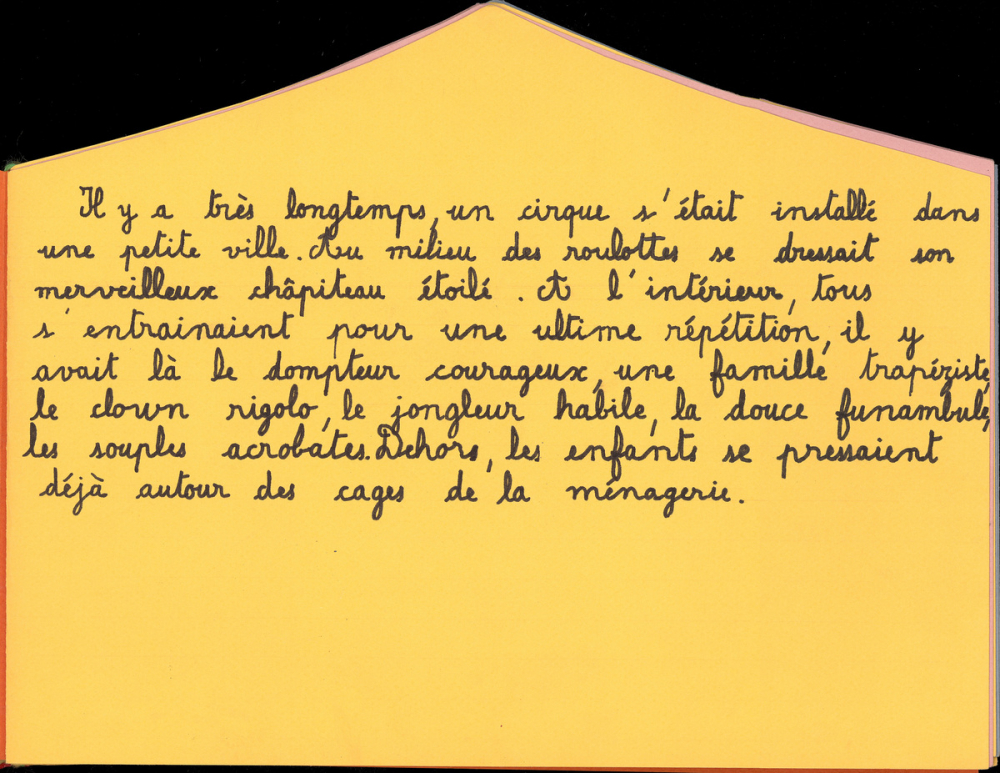 Il y a très longtemps, un cirque s'était installé dans
une petite ville. Au milieu des roulottes se dressait son
merveilleux châpiteau étoilé. A l'intérieur, tous
s'entrainaient pour une ultime répétition, il y
avait là le dompteur courageux, une famille trapéziste,
le clown rigolo, le jongleur habile, la douce funambule,
les souples acrobates. Dehors, les enfants se pressaient
déjà autour des cages de la ménagerie.